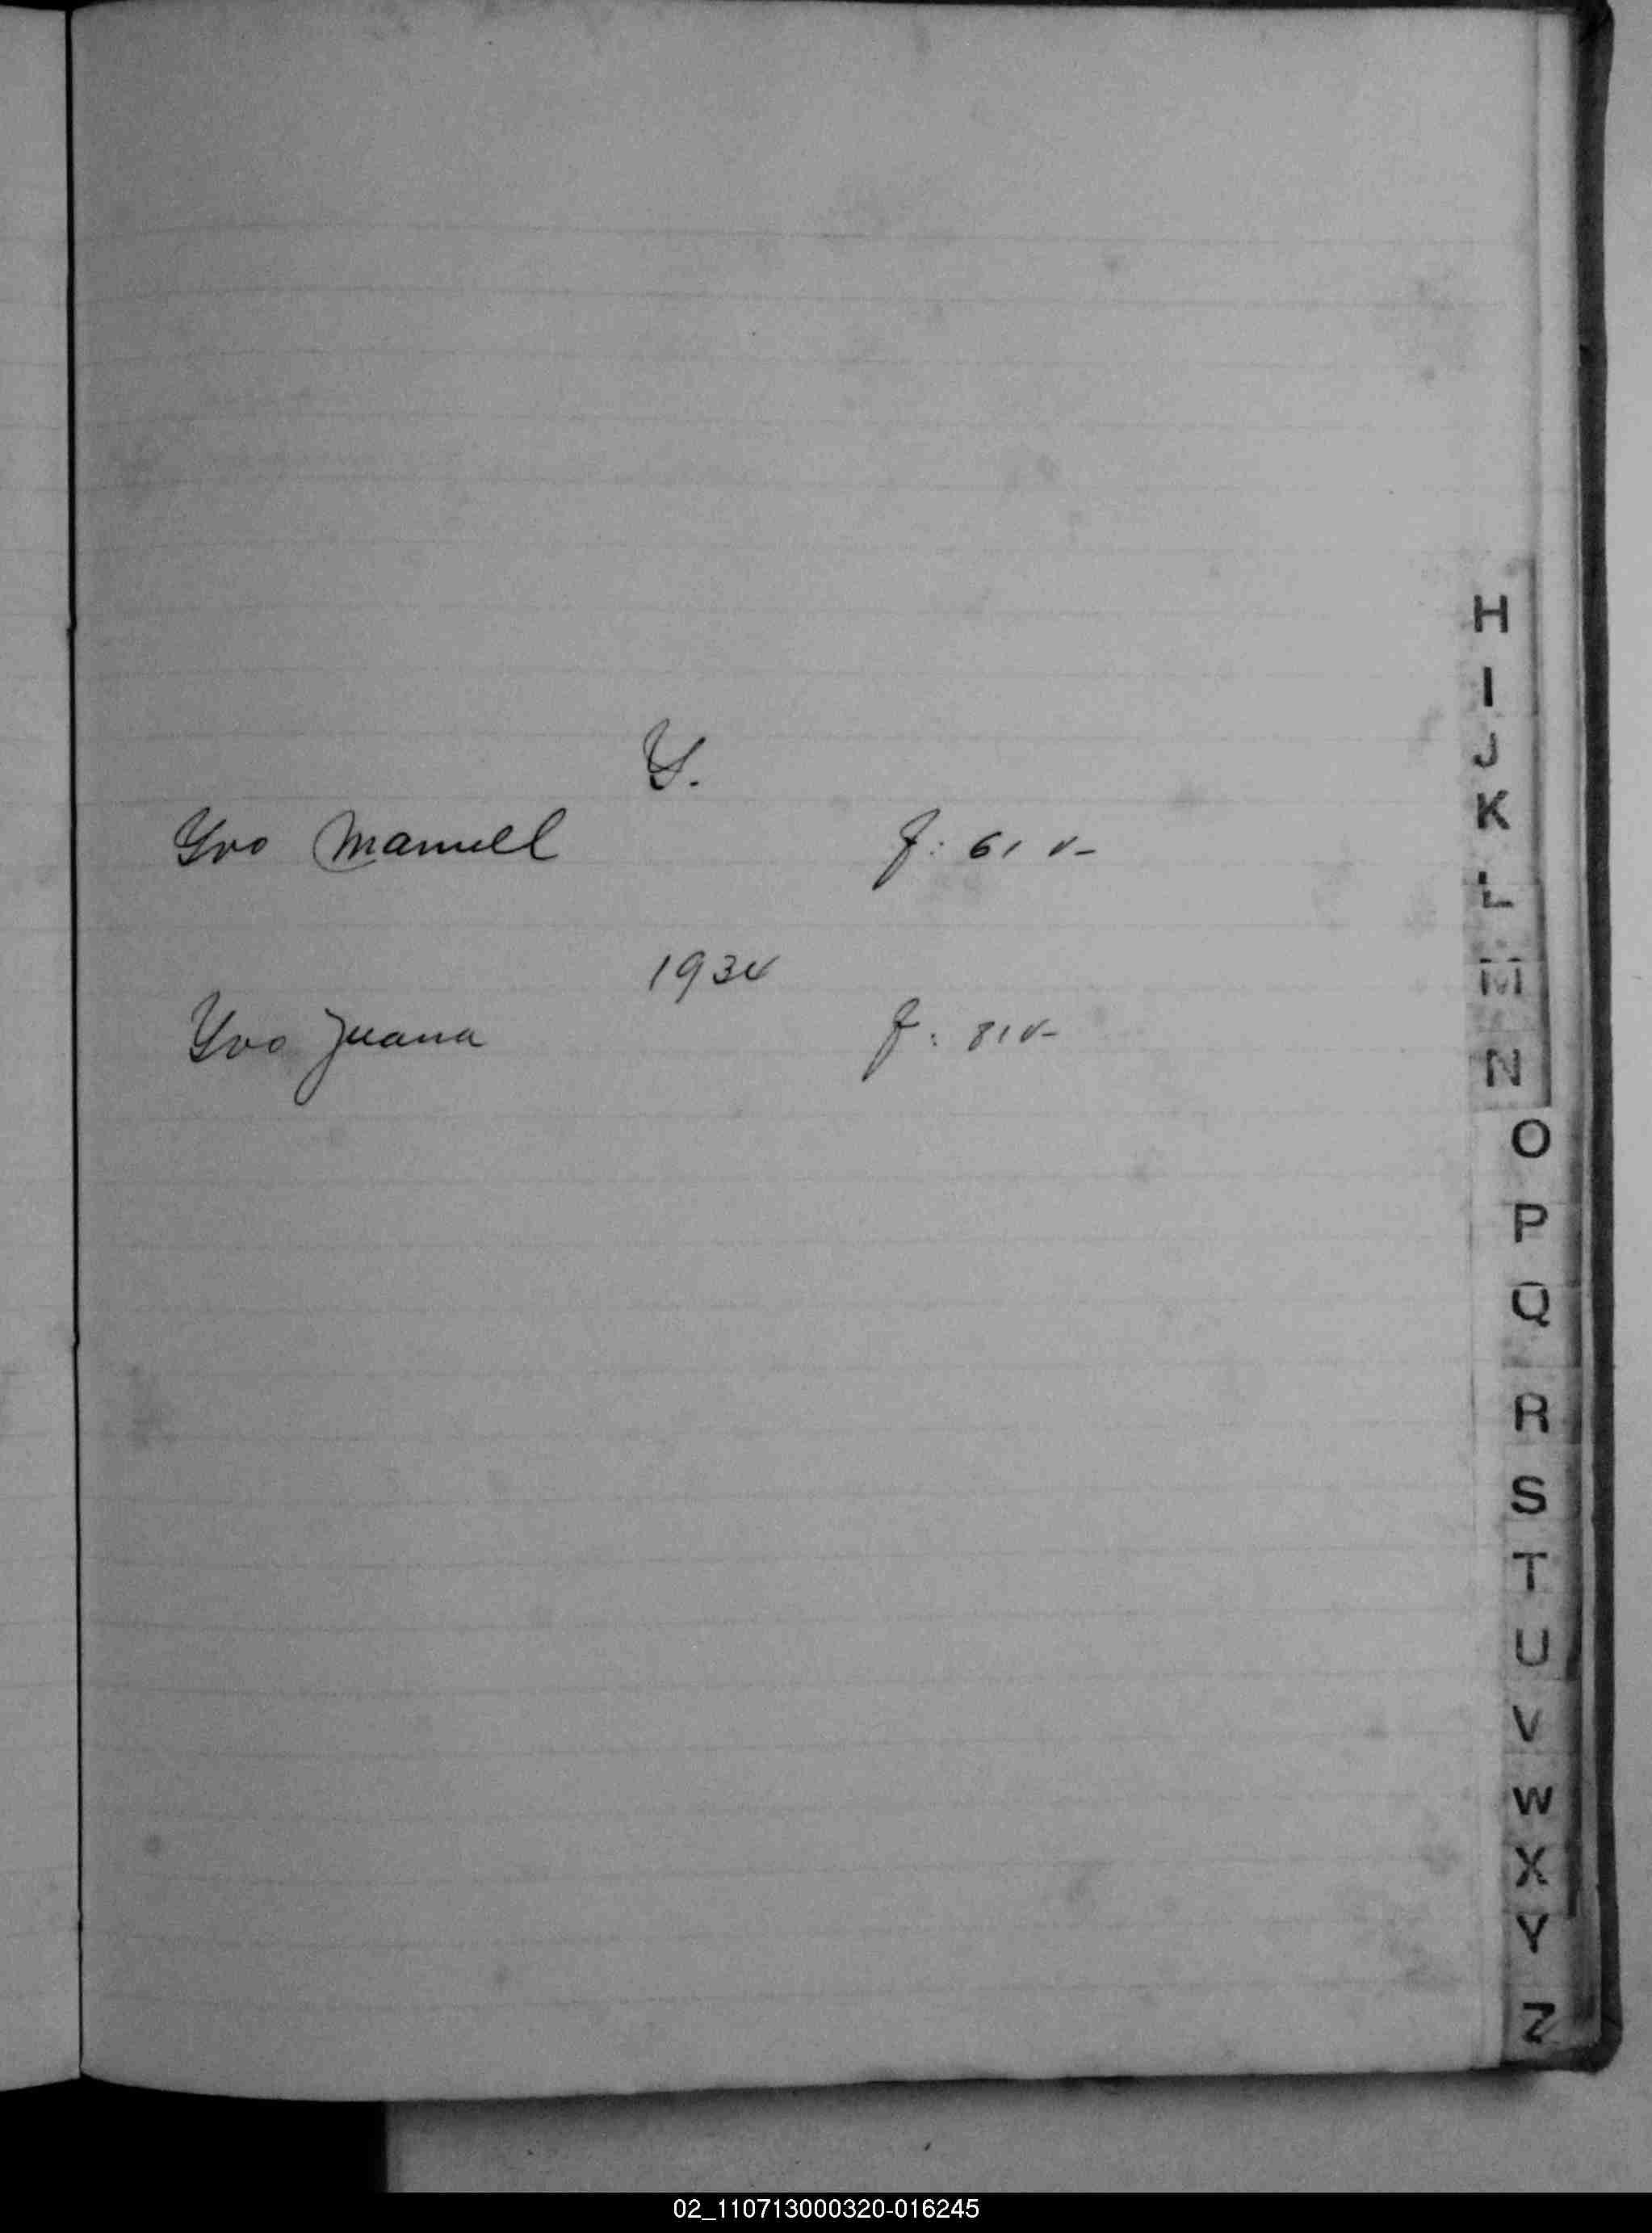 Y.
Yvo Manuel f: 61 v-
1934
Yvo Juana f: 81v-
H
I
J
K
L
M
N
O
P
Q
R
S
T
U
V
W
X
Y
Z
02_110713000320-016245